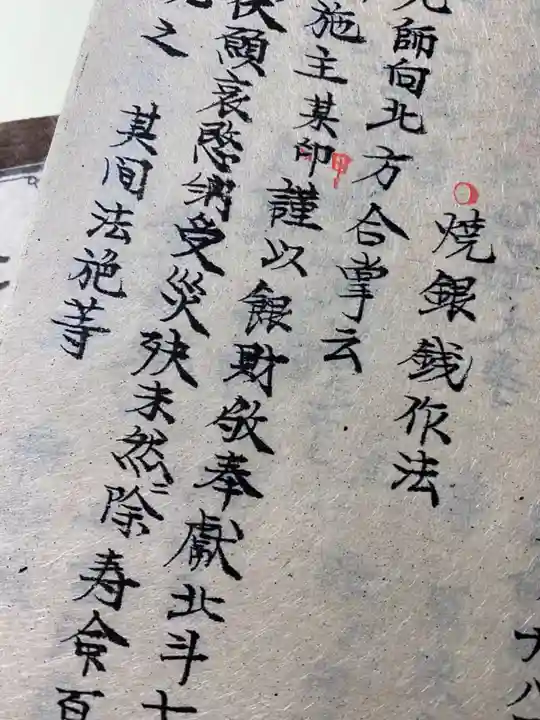 大八
焼銀銭作法
師向北方合掌云
施主某甲謹以銀財敬奉獻北斗七
願哀愍納受災殃未然ニ除寿命百
之 其間法施等